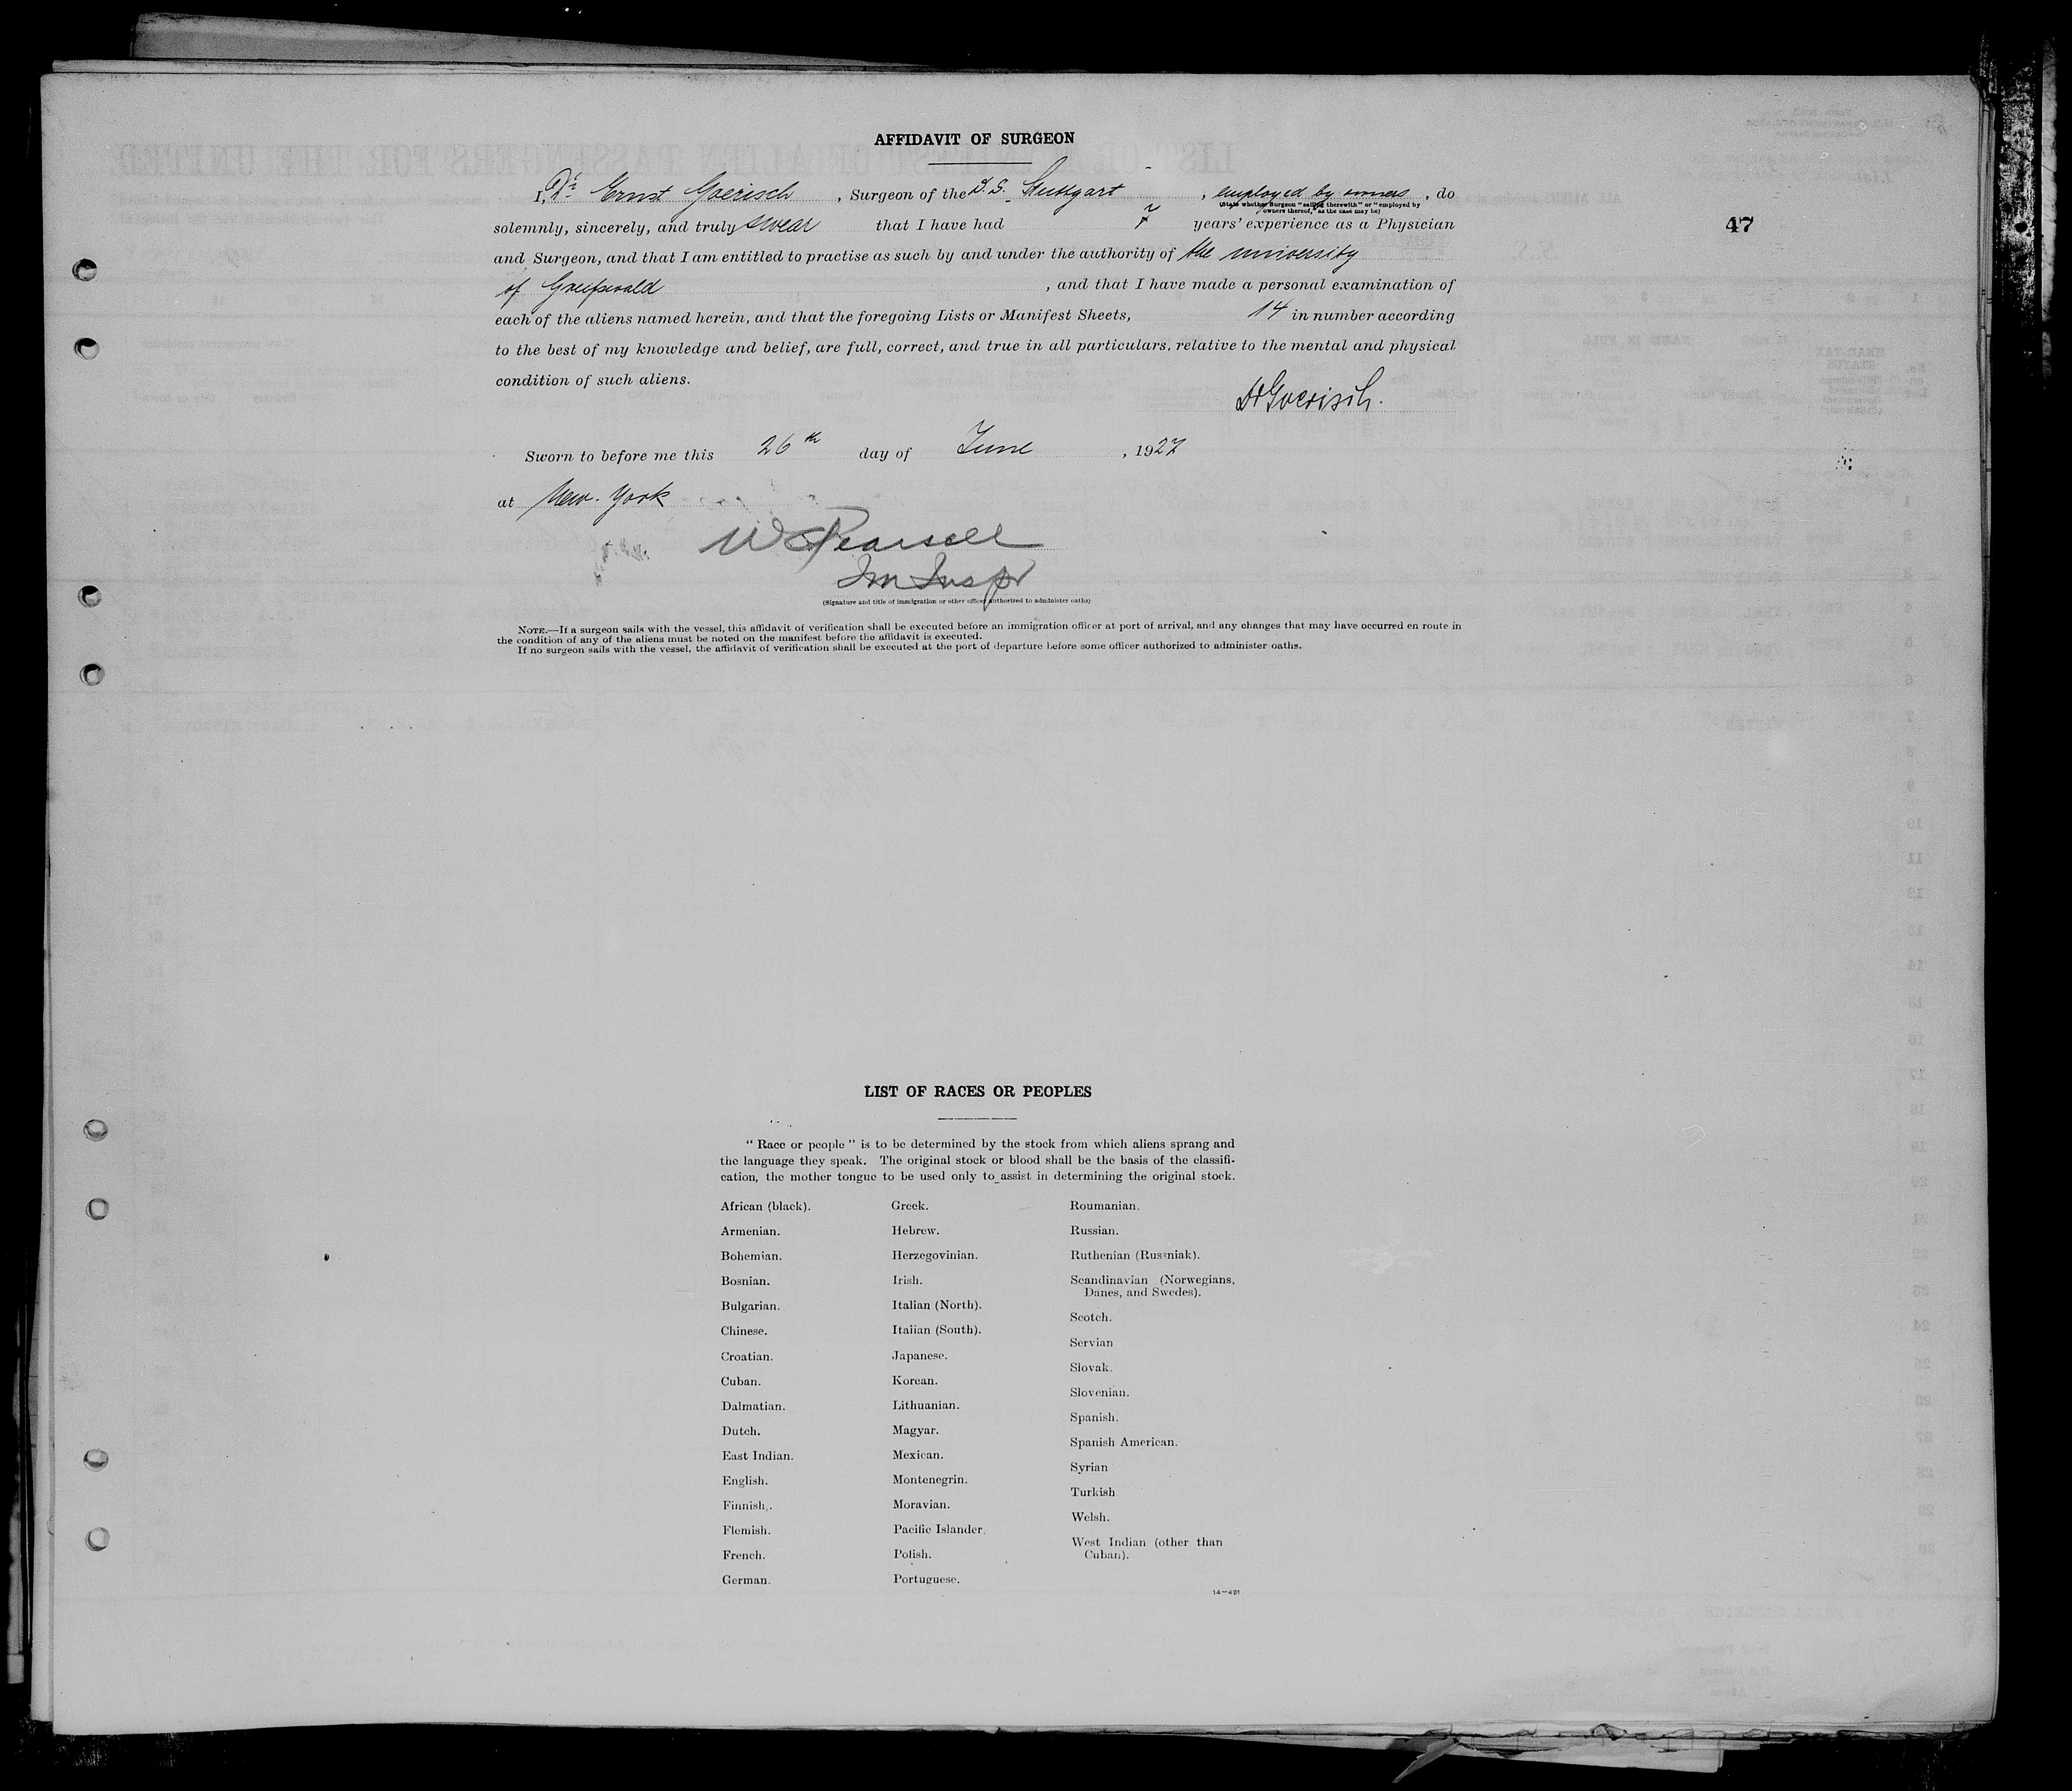 AFFIDAVIT OF SURGEON
I, Dr Ernst Goerisch, Surgeon of the S.S. Stuttgart, employed by owners, do
(State whether Surgeon "sailing therewith" or "employed by
owners thereof," as the case may be)
47
solemnly, sincerely, and truly swear that I have had 7 years' experience as a Physician
and Surgeon, and that I am entitled to practise as such by and under the authority of the university
of Greifswald, and that I have made a personal examination of
each of the aliens named herein, and that the foregoing Lists or Manifest Sheets, 14 in number according
to the best of my knowledge and belief, are full, correct, and true in all particulars, relative to the mental and physical
condition of such aliens.
Dr Goerisch.
Sworn to before me this 26th day of June, 1927
at New-York
W Pearsall
Im Inspr
(Signature and title of immigration or other officer authorized to administer oaths)
NOTE.—If a surgeon sails with the vessel, this affidavit of verification shall be executed before an immigration officer at port of arrival, and any changes that may have occurred en route in
the condition of any of the aliens must be noted on the manifest before the affidavit is executed.
If no surgeon sails with the vessel, the affidavit of verification shall be executed at the port of departure before some officer authorized to administer oaths.
LIST OF RACES OR PEOPLES
"Race or people" is to be determined by the stock from which aliens sprang and
the language they speak. The original stock or blood shall be the basis of the classifi-
cation, the mother tongue to be used only to assist in determining the original stock.
African (black).
Armenian.
Bohemian.
Bosnian.
Bulgarian.
Chinese.
Croatian.
Cuban.
Dalmatian.
Dutch.
East Indian.
English.
Finnish.
Flemish.
French.
German.
Greek.
Hebrew.
Herzegovinian.
Irish.
Italian (North).
Italian (South).
Japanese.
Korean.
Lithuanian.
Magyar.
Mexican.
Montenegrin.
Moravian.
Pacific Islander.
Polish.
Portuguese.
Roumanian.
Russian.
Ruthenian (Russniak).
Scandinavian (Norwegians,
Danes, and Swedes).
Scotch.
Servian
Slovak.
Slovenian.
Spanish.
Spanish American.
Syrian
Turkish
Welsh.
West Indian (other than
Cuban).
14—431